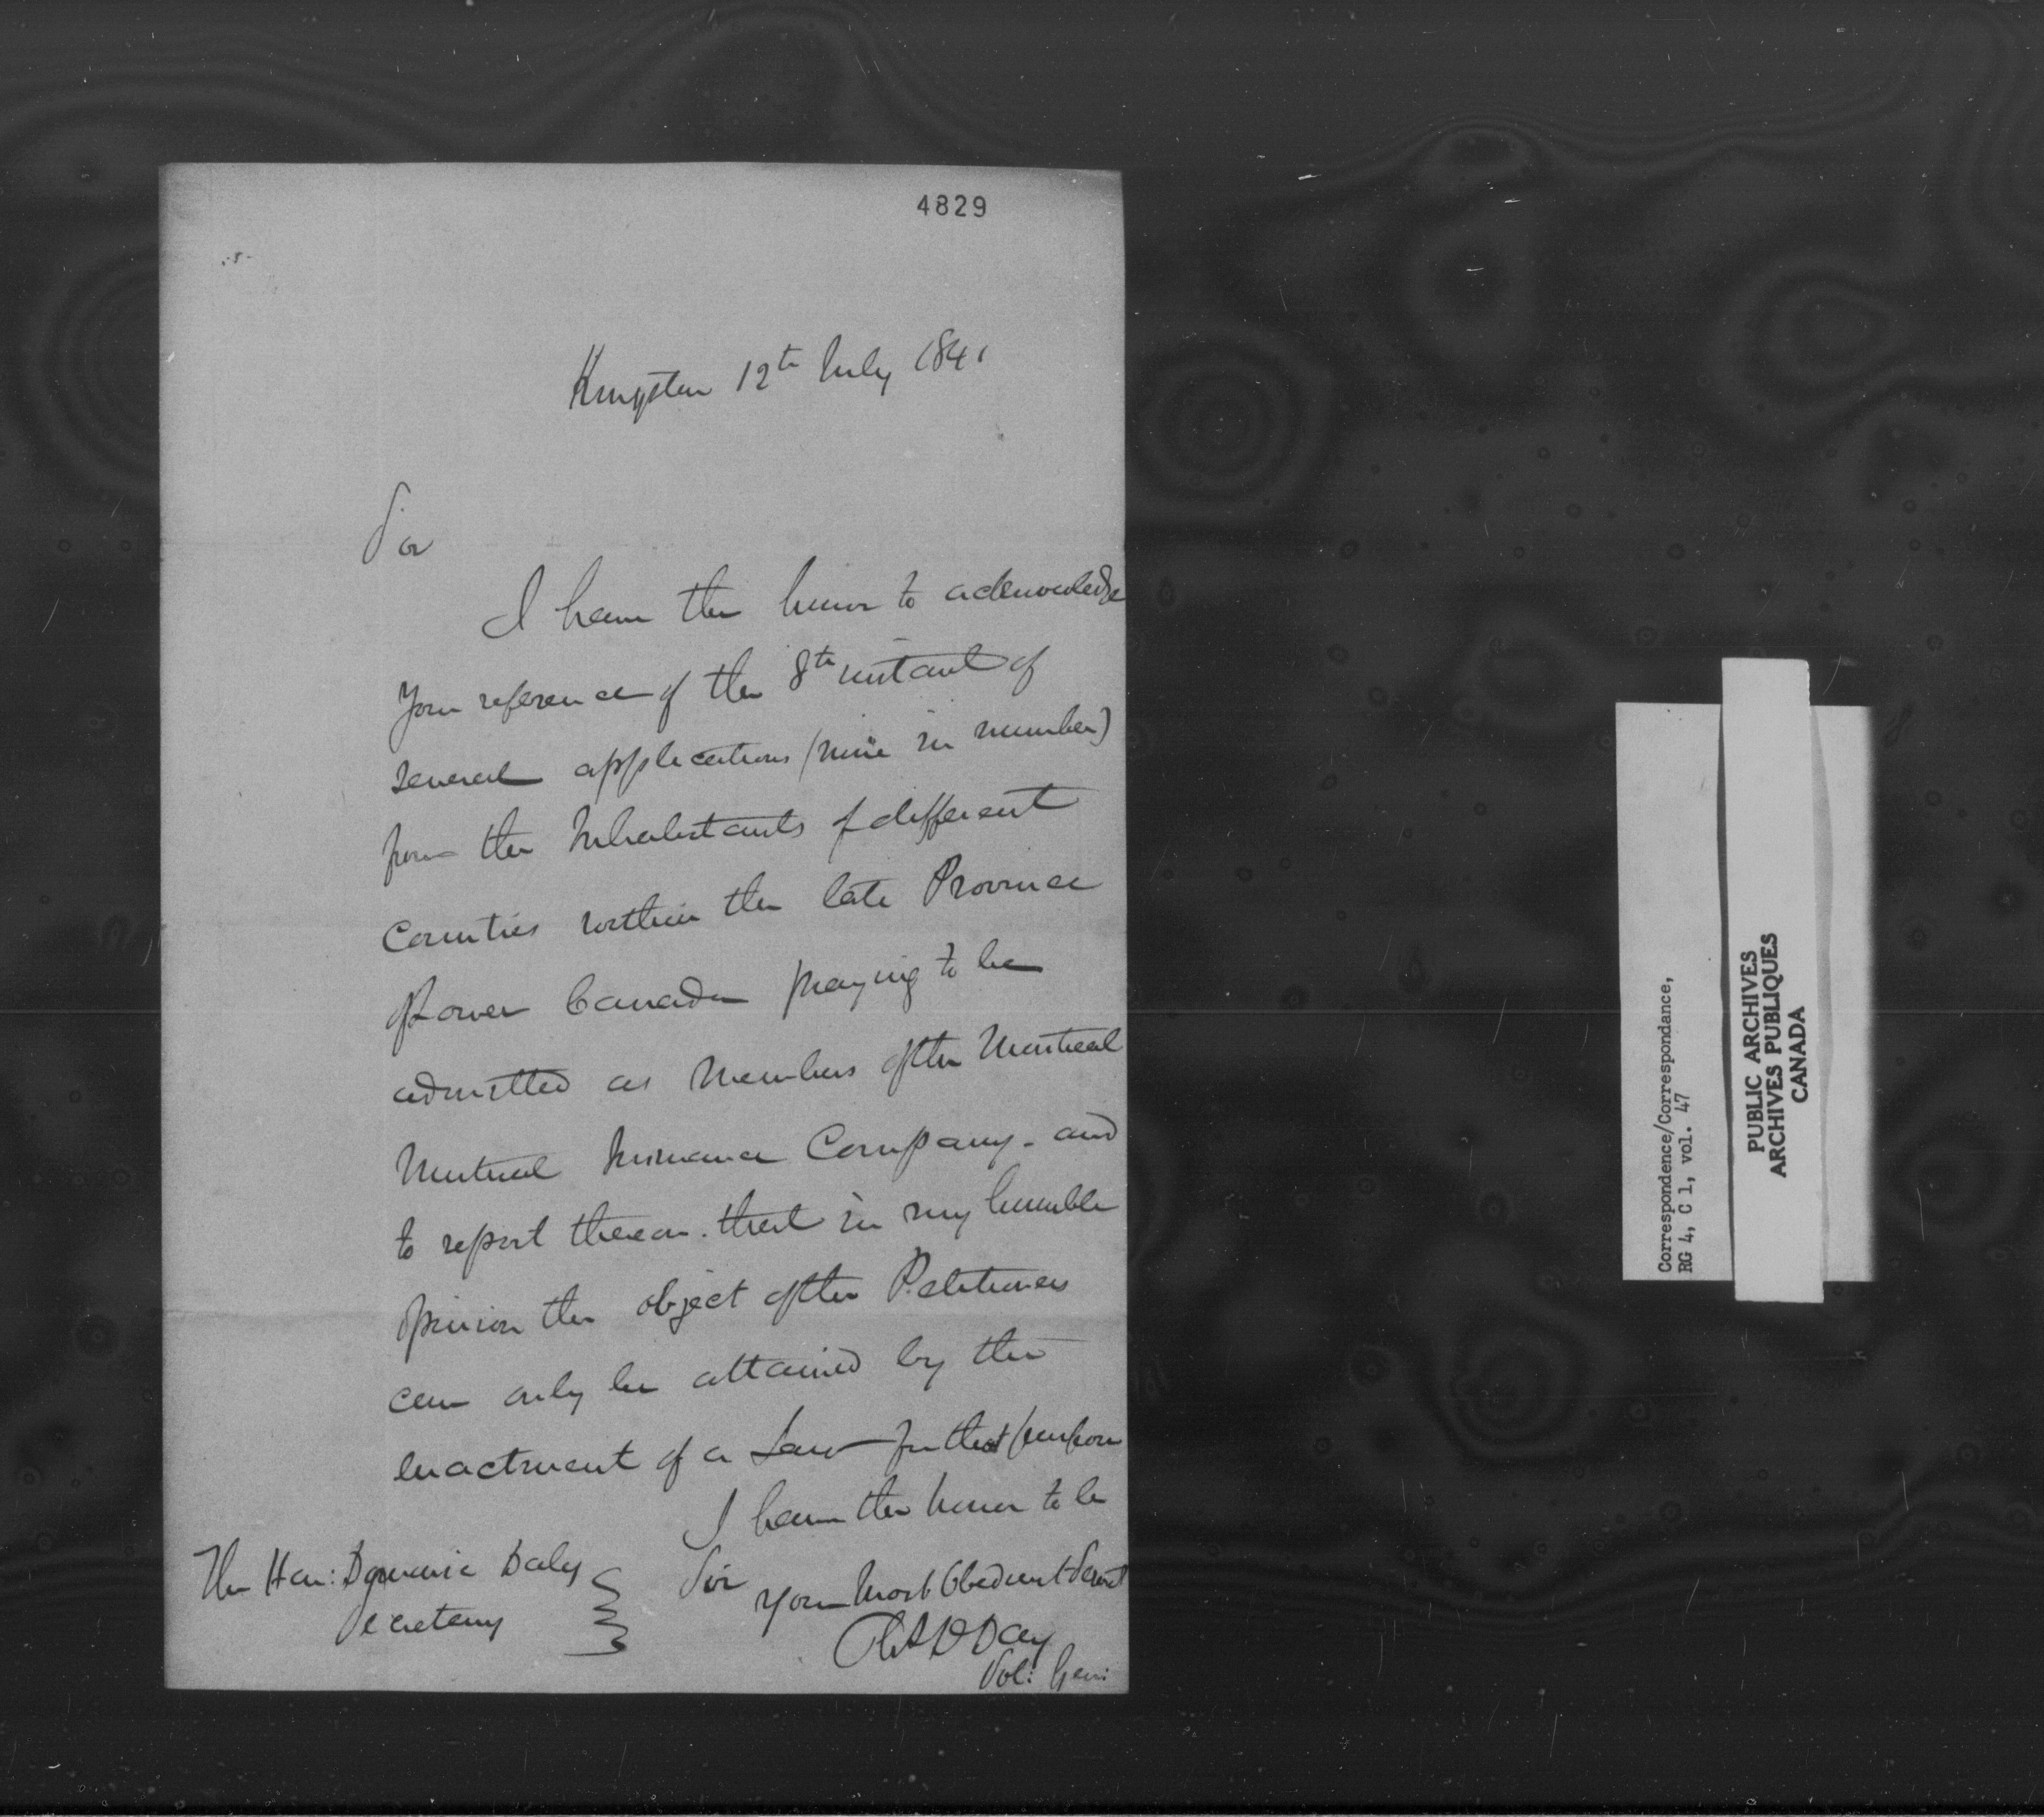 4829
Kingston 12th July 1841
Sir
I have the honor to acknowledge
Your reference of the 8th instant of
several applications (nine in number)
from the Inhabitants of different
Counties within the late Province
of Lower Canada praying to be
admitted as Members of the Montreal
Mutual Insurance Company - and
to report thereon. that in my humble
opinion the object of the Petitioners
can only be attained by the
enactment of a Law for that purpose
I have the honor to be
Sir
Your Most Obedient Servt
The Hon: Dominic Daly
Secretary
Day
Sol: Gen:
Correspondence/Correspondance,
RG 4, C 1, vol. 47
PUBLIC ARCHIVES
ARCHIVES PUBLIQUES
CANADA